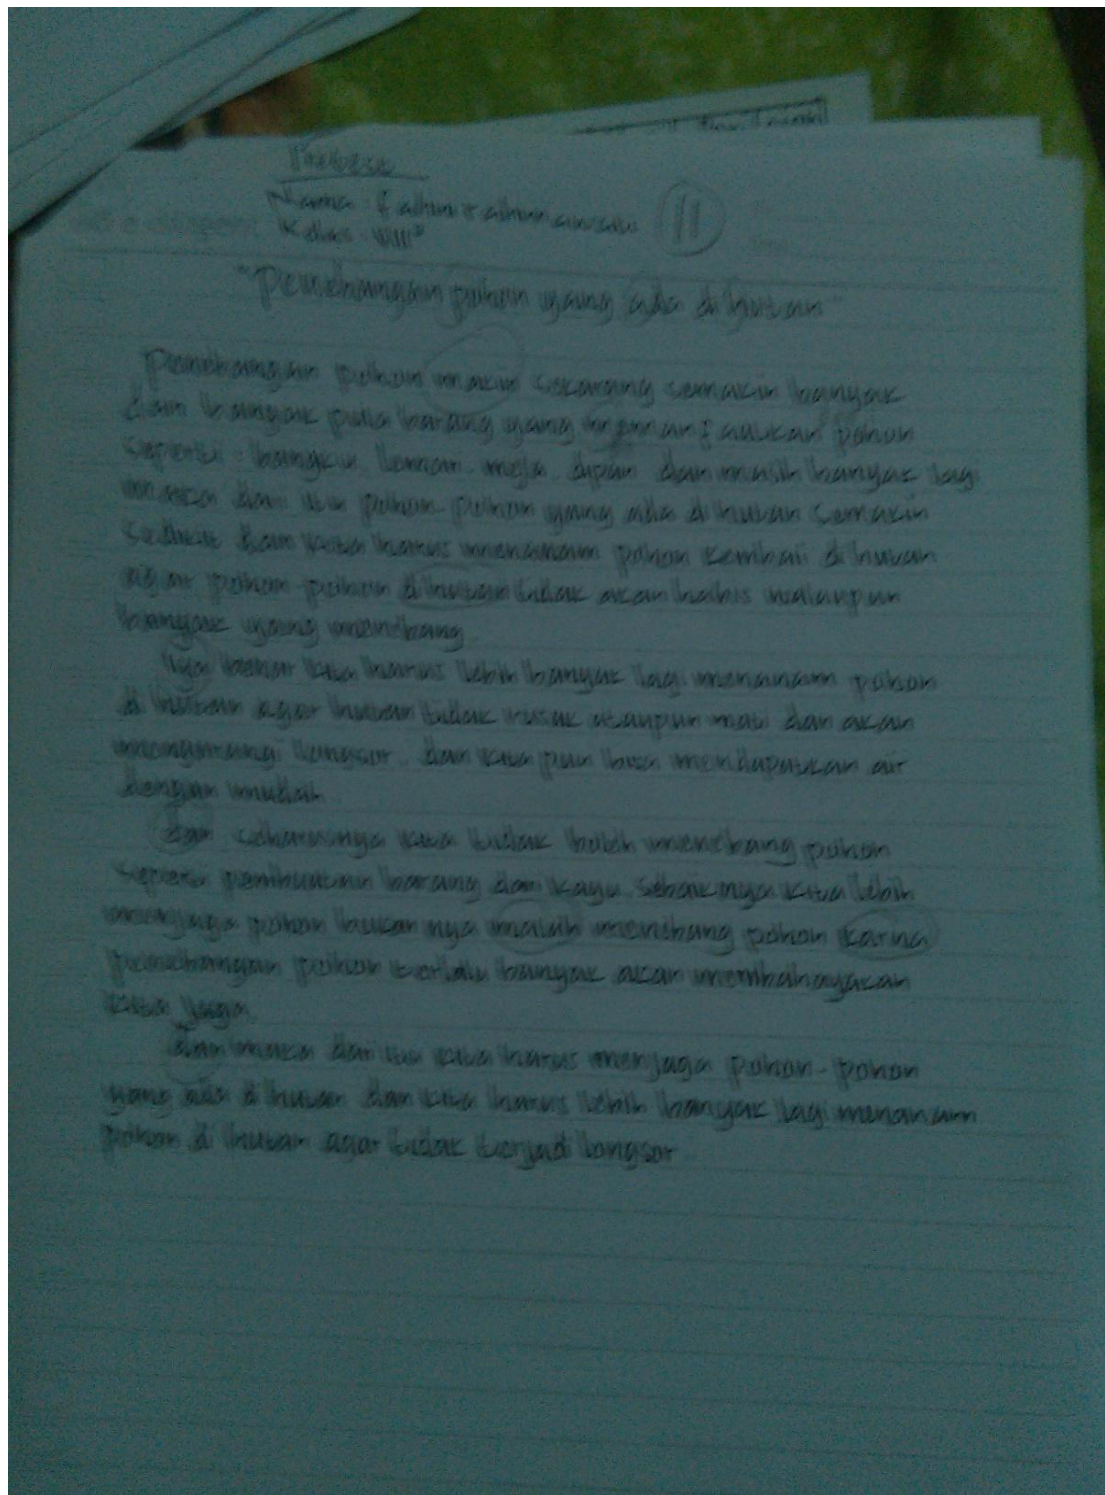 Nama : fahmi rahmawan
Kelas : VIII
11
"Penebangan pohon yang ada di hutan"
Penebangan pohon makin sekarang semakin banyak
dan banyak pula barang yang memanfaatkan pohon
seperti : bangku, lemari, meja, dipan dan masih banyak lagi
maka dari itu pohon-pohon yang ada di hutan semakin
sedikit dan kita harus menanam pohon kembali di hutan
agar pohon pohon di hutan tidak akan habis walaupun
banyak yang menebang.
iya benar kita harus lebih banyak lagi menanam pohon
di hutan agar hutan tidak rusak ataupun mati dan akan
mengurangi longsor. dan kita pun bisa mendapatkan air
dengan mudah.
dan seharusnya kita tidak boleh menebang pohon
seperti pembuatan barang dari kayu. sebaiknya kita lebih
menjaga pohon bukan nya malah menebang pohon karna
penebangan pohon terlalu banyak akan membahayakan
kita juga.
dan maka dari itu kita harus menjaga pohon-pohon
yang ada di hutan dan kita harus lebih banyak lagi menanam
pohon di hutan agar tidak terjadi longsor